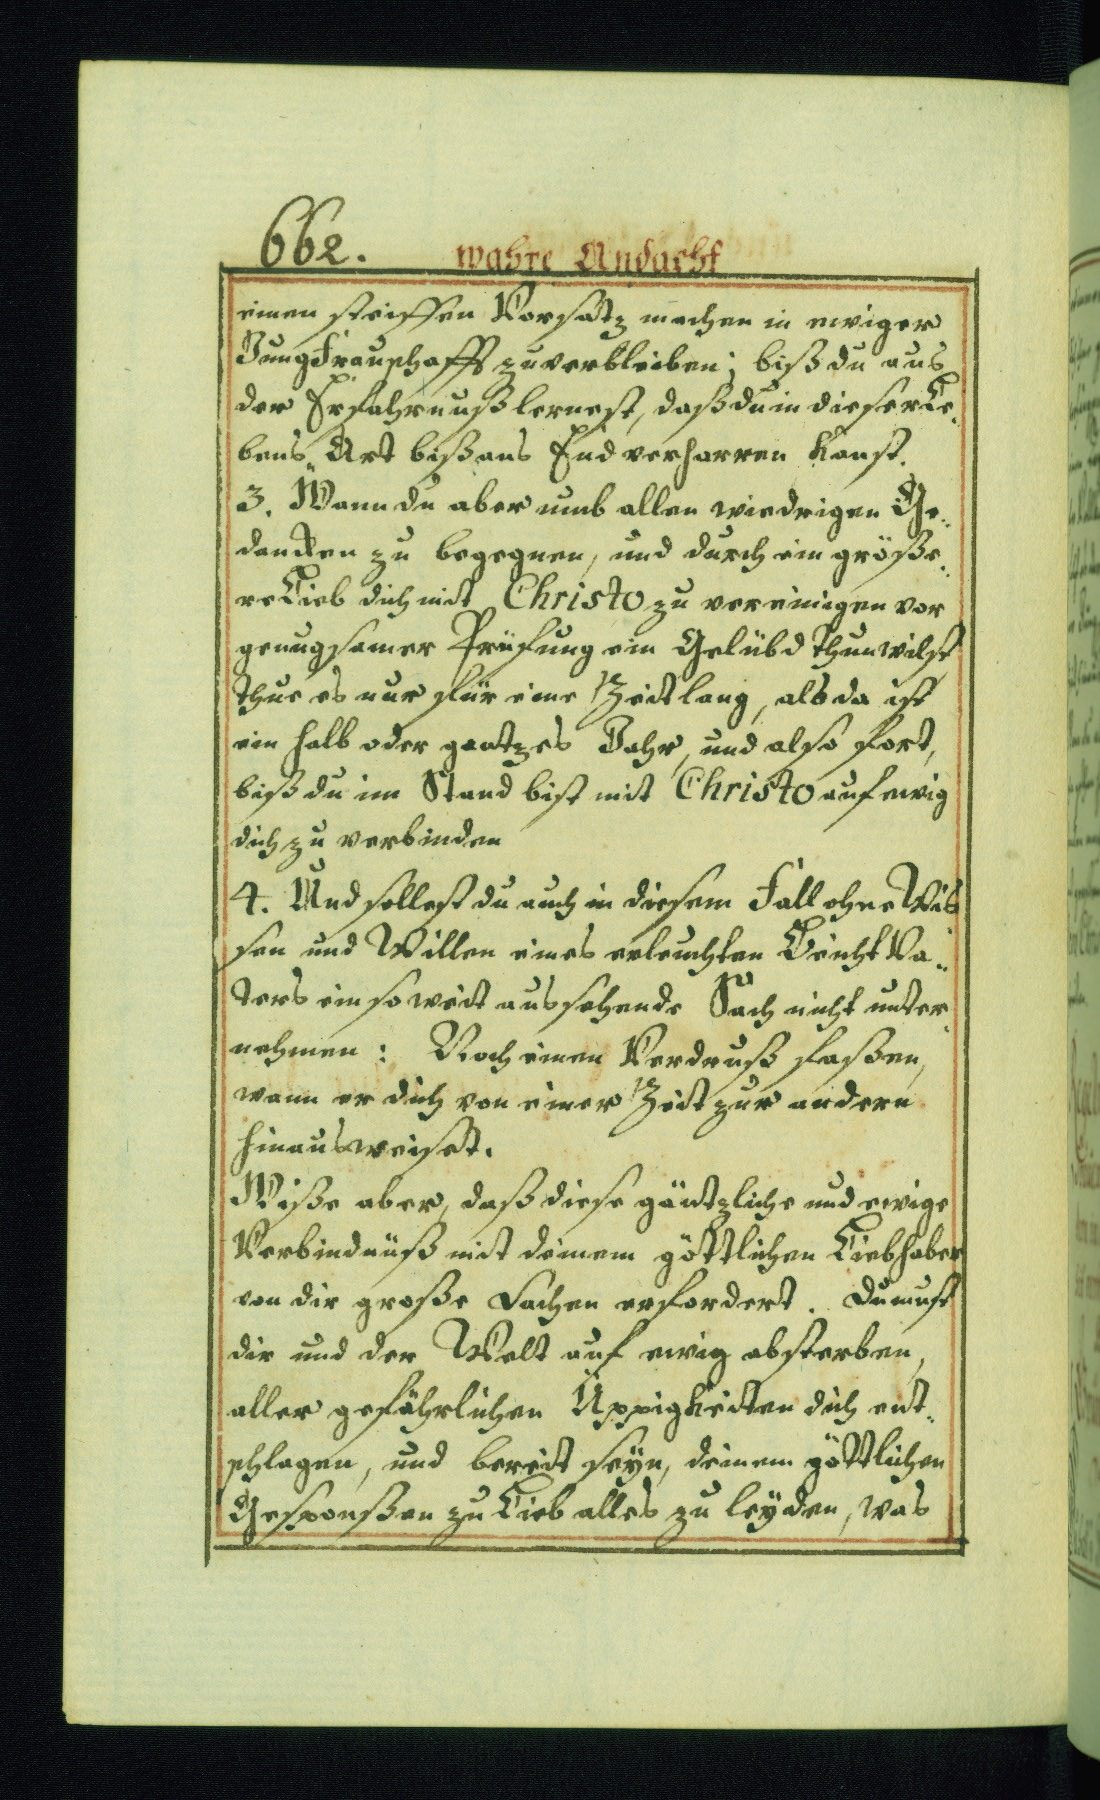 662. wahre Andacht
einen steiffen Vorsatz machen in ewiger
Jungfrauschafft zuverbleiben; biß du aus
der Erfahrnuß lernest, daß du in dieser Le„
bens„ Art biß ans End verharren kanst.
3. Wann du aber umb allen wiedrigen Ge„
dancken zu begegnen, und durch ein größe„
re Lieb dich mit Christo zu vereinigen vor
genugsamer Prüfung ein Gelübd thun wilst
thue es nur für eine Zeitlang, als da ist
ein halb oder gantzes Jahr, und also fort,
biß du im Stand bist mit Christo auf ewig
dich zu verbinden
4. Und sollest du auch in diesem Fall ohne Wis
sen und Willen eines erleuchten Beicht Va„
ters ein so weit aussehende Sach nicht unter„
nehmen: Noch einen Verdruß faßen,
wann er dich von einer Zeit zur andern
hinausweiset.
Wiße aber, daß diese gäntzliche und ewige
Verbindnuß mit deinem göttlichen Liebhaber
von dir große Sachen erfordert. Du must
dir und der Welt auf ewig absterben,
aller gefährlichen Üppigkeiten dich ent„
schlagen, und bereit seÿn, deinem göttlichen
Gesponßen zu Lieb alles zu leÿden, was